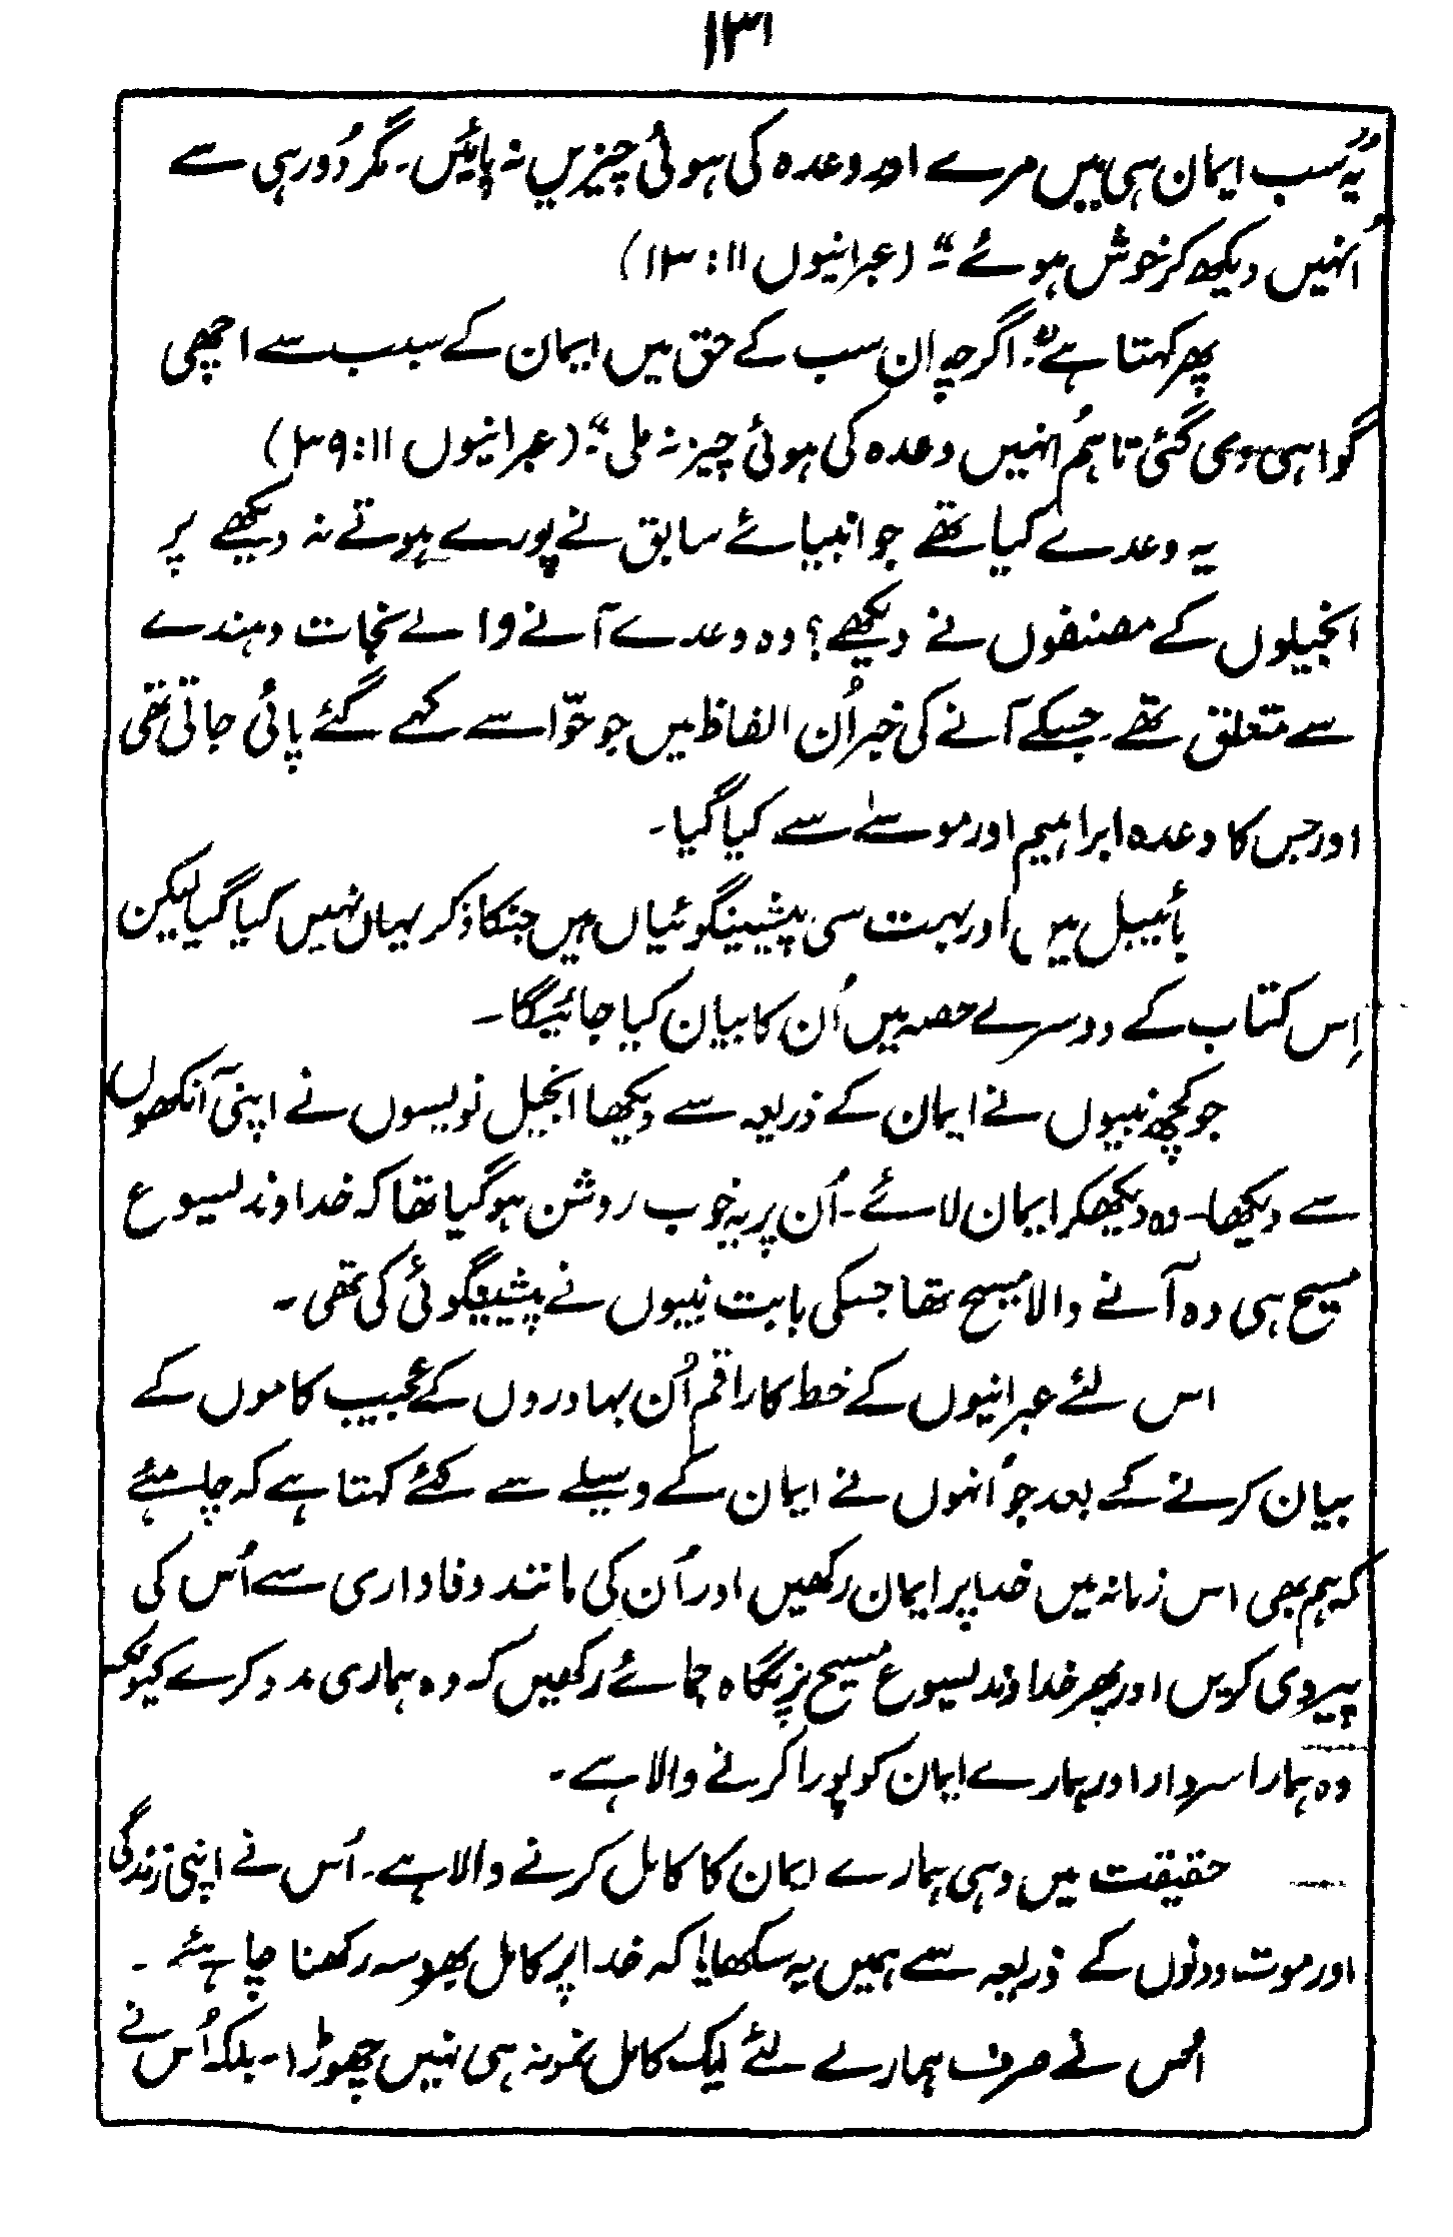 ۱۳۱
”یہ سب ایمان ہی میں مرے اور وعدہ کی ہوئی چیزیں نہ پائیں۔ مگر دُور ہی سے
اُنہیں دیکھ کر خوش ہوئے“۔ (عبرانیوں ۱۱: ۱۳)
پھر کہتا ہے۔ ”اگرچہ اِن سب کے حق میں ایمان کے سبب سے اچھی
گواہی دی گئی تاہم اُنہیں وعدہ کی ہوئی چیز نہ ملی“۔ (عبرانیوں ۱۱: ۳۹)
یہ وعدے کیا تھے جو انبیائے سابق نے پورے ہوتے نہ دیکھے پر
انجیلوں کے مصنفوں نے دیکھے؟ وہ وعدے آنے والے نجات دہندے
سے متعلق تھے۔ جسکے آنے کی خبر اُن الفاظ میں جو حوّا سے کہے گئے پائی جاتی تھی
اور جس کا وعدہ ابراہیم اور موسےٰ سے کیا گیا۔
بائیبل میں اور بہت سی پیشینگوئیاں ہیں جنکا ذکر یہاں نہیں کیا گیا لیکن
اِس کتاب کے دوسرے حصہ میں اُن کا بیان کیا جائیگا۔
جو کچھ نبیوں نے ایمان کے ذریعہ سے دیکھا انجیل نویسوں نے اپنی آنکھوں
سے دیکھا۔ وہ دیکھکر ایمان لائے۔ اُن پر یہ خوب روشن ہو گیا تھا کہ خداوند یسوع
مسیح ہی وہ آنے والا مسیح تھا جسکی بابت نبیوں نے پیشینگوئی کی تھی۔
اس لئے عبرانیوں کے خط کا راقم اُن بہادروں کے عجیب کاموں کے
بیان کرنے کے بعد جو اُنہوں نے ایمان کے وسیلے سے کئے کہتا ہے کہ چاہئے
کہ ہم بھی اس زمانہ میں خدا پر ایمان رکھیں اور اُن کی مانند وفاداری سے اُس کی
پیروی کریں اور پھر خداوند یسوع مسیح پر نگاہ جمائے رکھیں کہ وہ ہماری مدد کرے کیونکہ
وہ ہمارا سردار اور ہمارے ایمان کو پورا کرنے والا ہے۔
حقیقت میں وہی ہمارے ایمان کا کامل کرنے والا ہے۔ اُس نے اپنی زندگی
اور موت دونوں کے ذریعہ سے ہمیں یہ سکھایا کہ خدا پر کامل بھروسہ رکھنا چاہئے۔
اُس نے صرف ہمارے لئے ایک کامل نمونہ ہی نہیں چھوڑا۔ بلکہ اُس نے